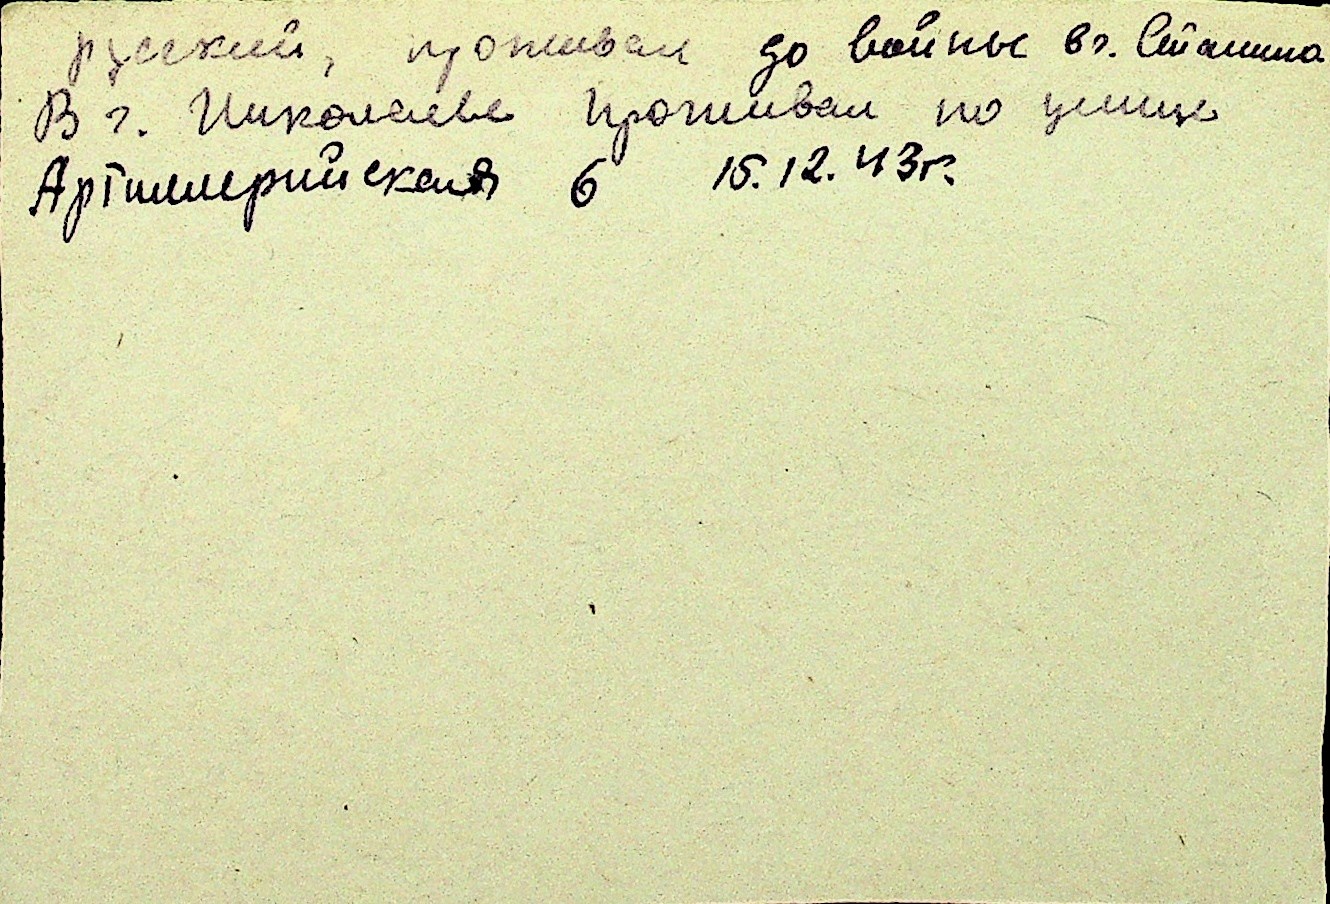 русский, проживал до войны в г. Сталино
В г. Николаеве проживал по улице
Артиллерийская 6 15.12.43г.